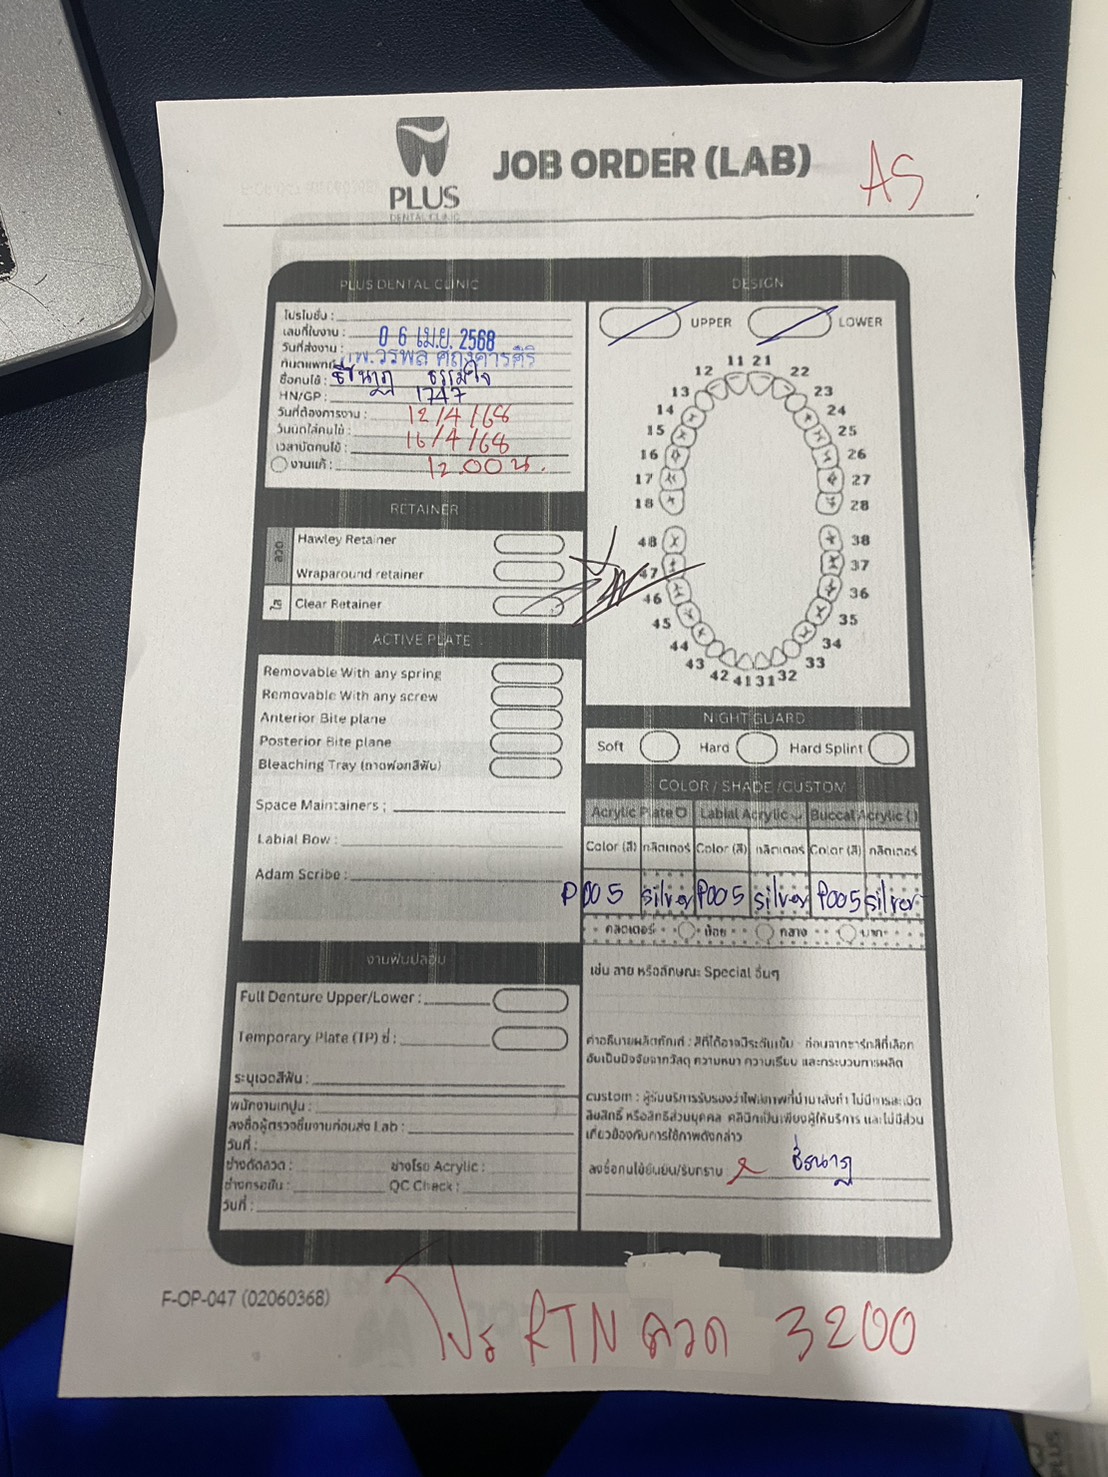 PLUS
DENTAL CLINIC
JOB ORDER (LAB)
AS
PLUS DENTAL CLINIC
โปรโมชั่น :
เลขที่ใบงาน :
วันที่ส่งงาน : 0 6 เม.ย. 2568
ทันตแพทย์ : ทพ.วรพล
ชื่อคนไข้ :
HN/GP : 1747
วันที่ต้องการงาน : 12/4/68
วันนัดใส่คนไข้ : 16/4/68
เวลานัดคนไข้ :
งานแก้ : 12.00 น.
RETAINER
ลวด
Hawley Retainer
Wraparound retainer
ใส
Clear Retainer
ACTIVE PLATE
Removable With any spring
Removable With any screw
Anterior Bite plane
Posterior Bite plane
Bleaching Tray (ถาดฟอกสีฟัน)
Space Maintainers :
Labial Bow :
Adam Scribe :
งานฟันปลอม
Full Denture Upper/Lower :
Temporary Plate (TP) ซี่ :
ระบุเฉดสีฟัน :
พนักงานเทปูน :
ลงชื่อผู้ตรวจชิ้นงานก่อนส่ง Lab :
วันที่ :
ช่างดัดลวด : ช่างโรย Acrylic :
ช่างกรอขัด : QC Check :
วันที่ :
DESIGN
UPPER LOWER
11 21
12 22
13 23
14 24
15 25
16 26
17 27
18 28
48 38
47 37
46 36
45 35
44 34
43 33
42 41 31 32
NIGHT GUARD
Soft Hard Hard Splint
COLOR / SHADE /CUSTOM
Acrylic Plate Labial Acrylic Buccal Acrylic ( )
Color (สี) กลิตเตอร์ Color (สี) กลิตเตอร์ Color (สี) กลิตเตอร์
P005 silver P005 silver P005 silver
กลิตเตอร์ น้อย กลาง มาก
เช่น ลาย หรือลักษณะ Special อื่นๆ
คำอธิบายผลิตภัณฑ์ : สีที่ได้อาจมีระดับเข้ม - อ่อนจากชาร์ทสีที่เลือก
อันเป็นปัจจัยจากวัสดุ ความหนา ความเรียบ และกระบวนการผลิต
custom : ผู้รับบริการรับรองว่าไฟล์ภาพที่นำมาสั่งทำ ไม่มีการละเมิด
ลิขสิทธิ์ หรือสิทธิส่วนบุคคล คลินิกเป็นเพียงผู้ให้บริการ และไม่มีส่วน
เกี่ยวข้องกับการใช้ภาพดังกล่าว
ลงชื่อคนไข้ยืนยัน/รับทราบ
F-OP-047 (02060368)
โปร RTN ลวด 3200